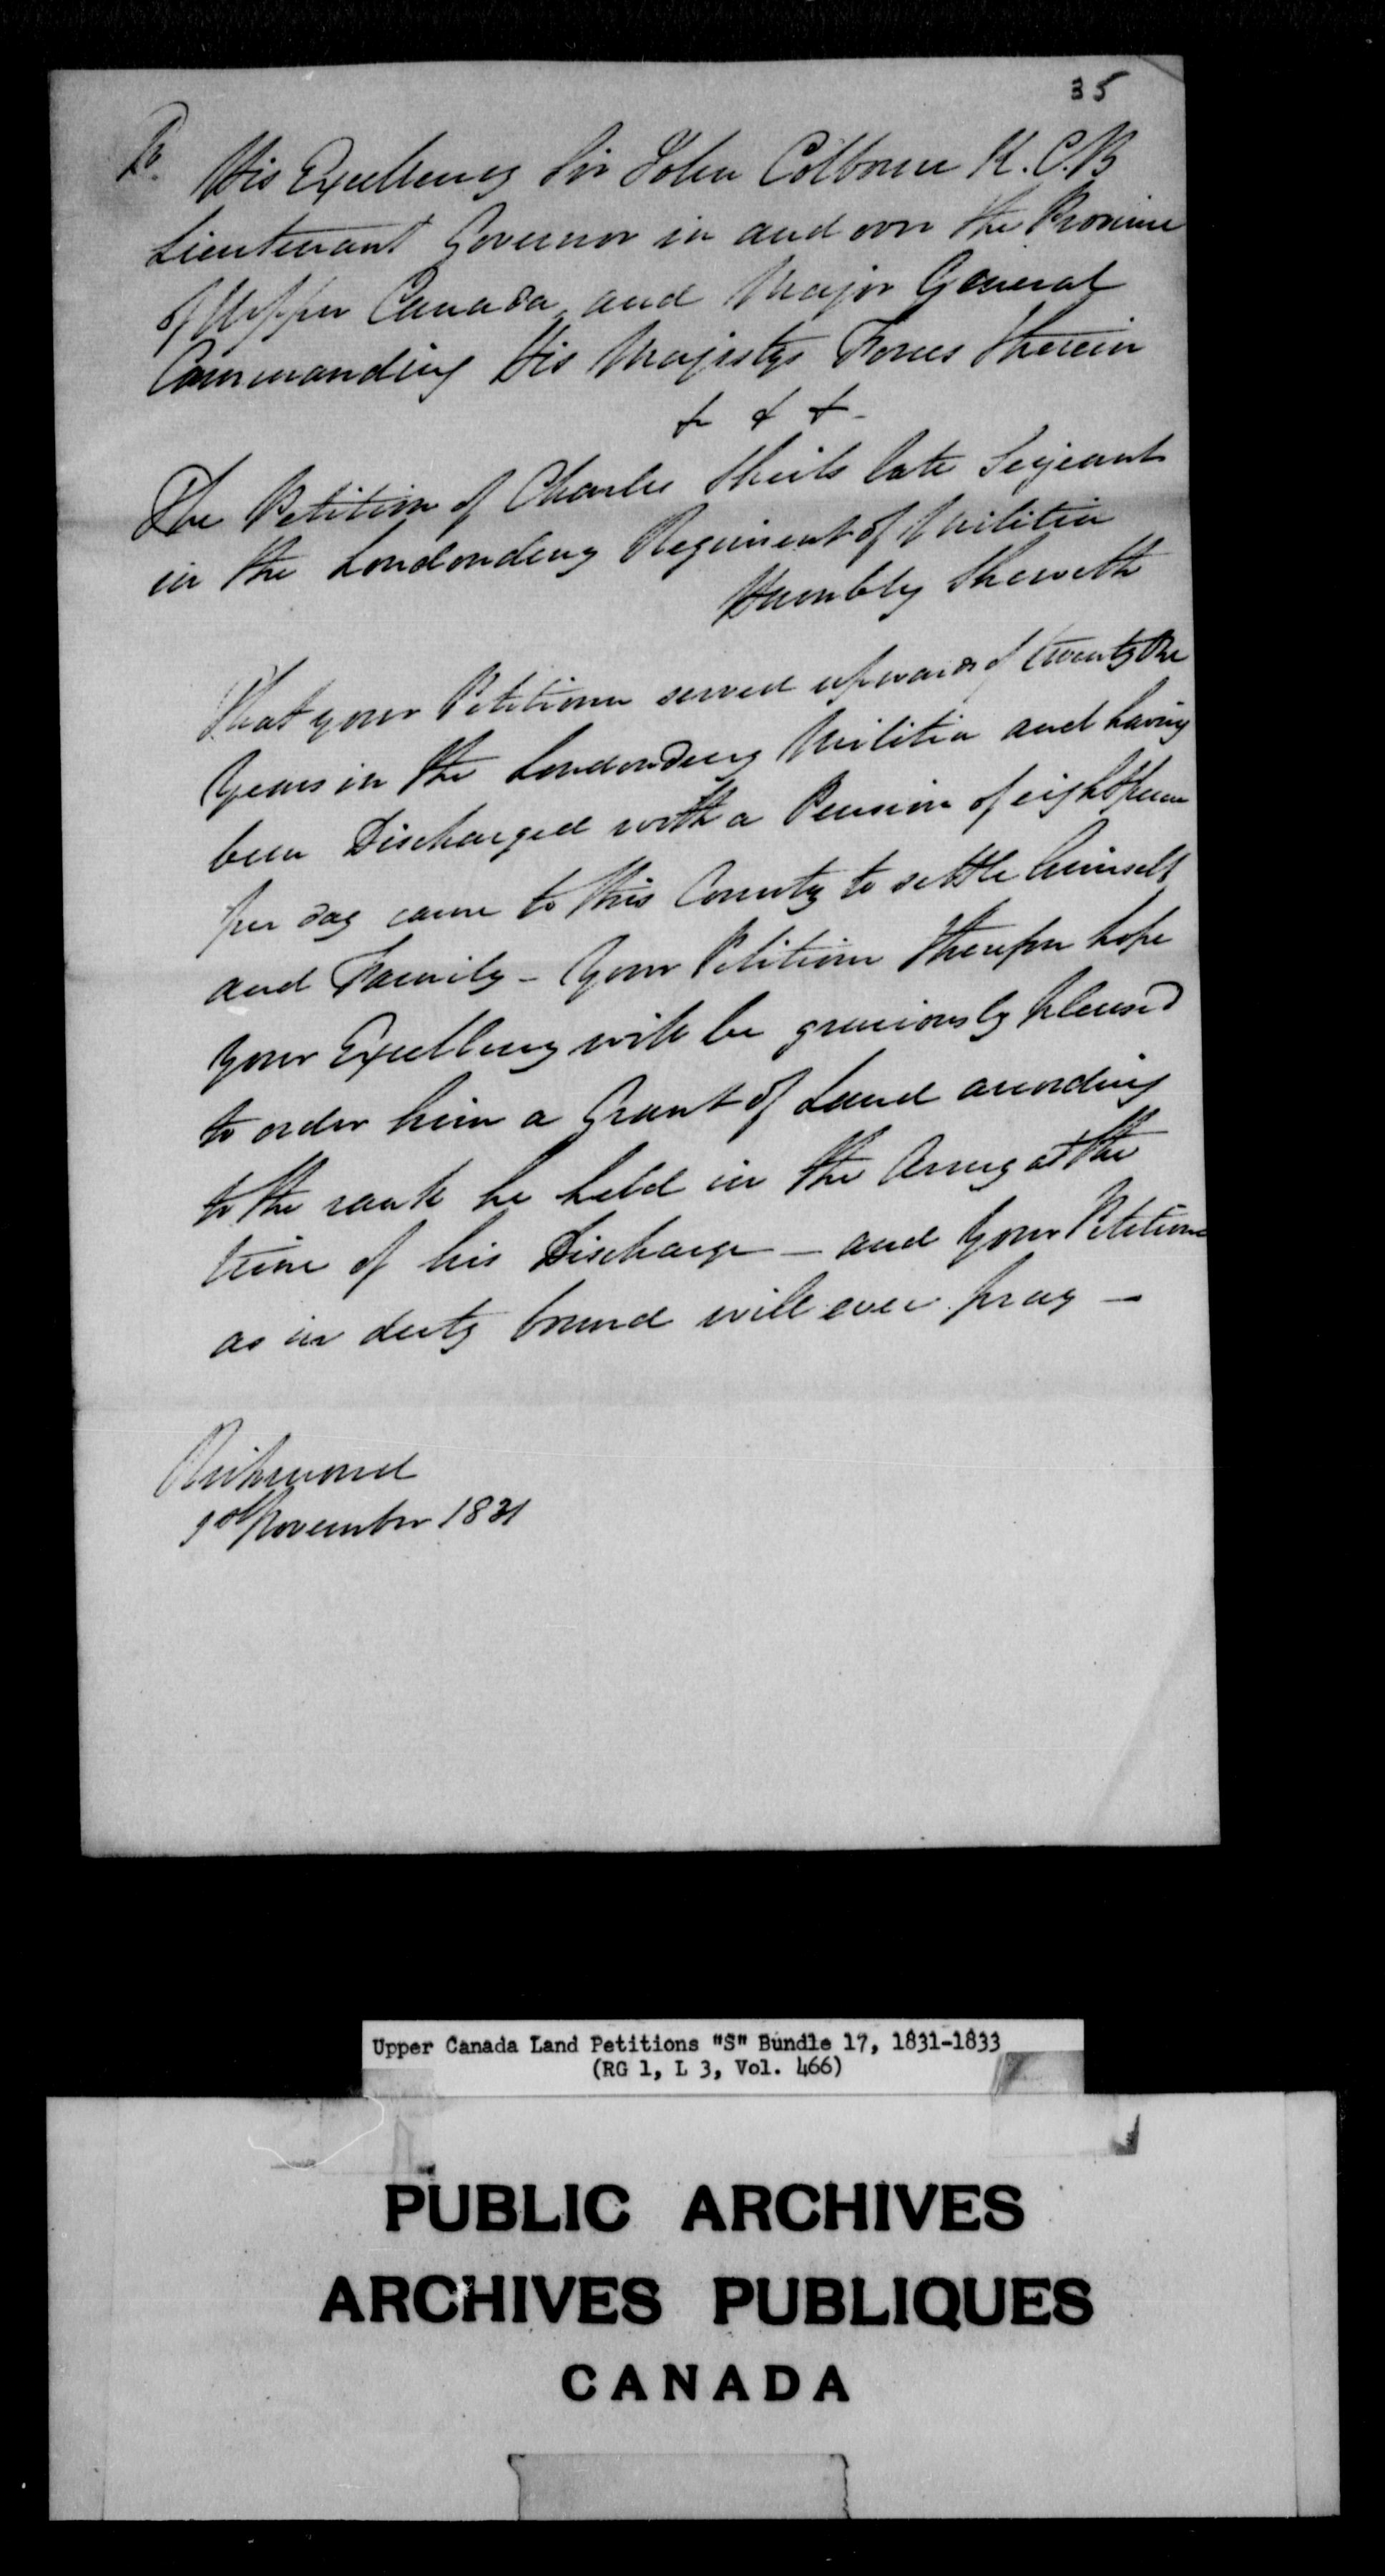 35
To His Excellency Sir John Colborne K.C.B
Lieutenant Governor in and over the Province
of Upper Canada and Major General
Commanding His Majestys Forces therein
& & &
The Petition of Charles Sheils late Serjeant
in the Londonderry Regiment of Militia
Humbly Sheweth
That your Petitioner served upwards of twenty
Years in the Londonderry Militia and having
been Discharged with a Pension of eight pence
per day came to this Country to settle himself
and Family - Your Petitioner therefore hope
Your Excellency will be graciously pleased
to order him a Grant of Land according
to the rank he held in the Army at the
time of his Discharge - and Your Petitioner
as in duty bound will ever pray -
Richmond
November 1831
Upper Canada Land Petitions "S" Bundle 17, 1831-1833
(RG 1, L 3, Vol. 466)
PUBLIC ARCHIVES
ARCHIVES PUBLIQUES
CANADA